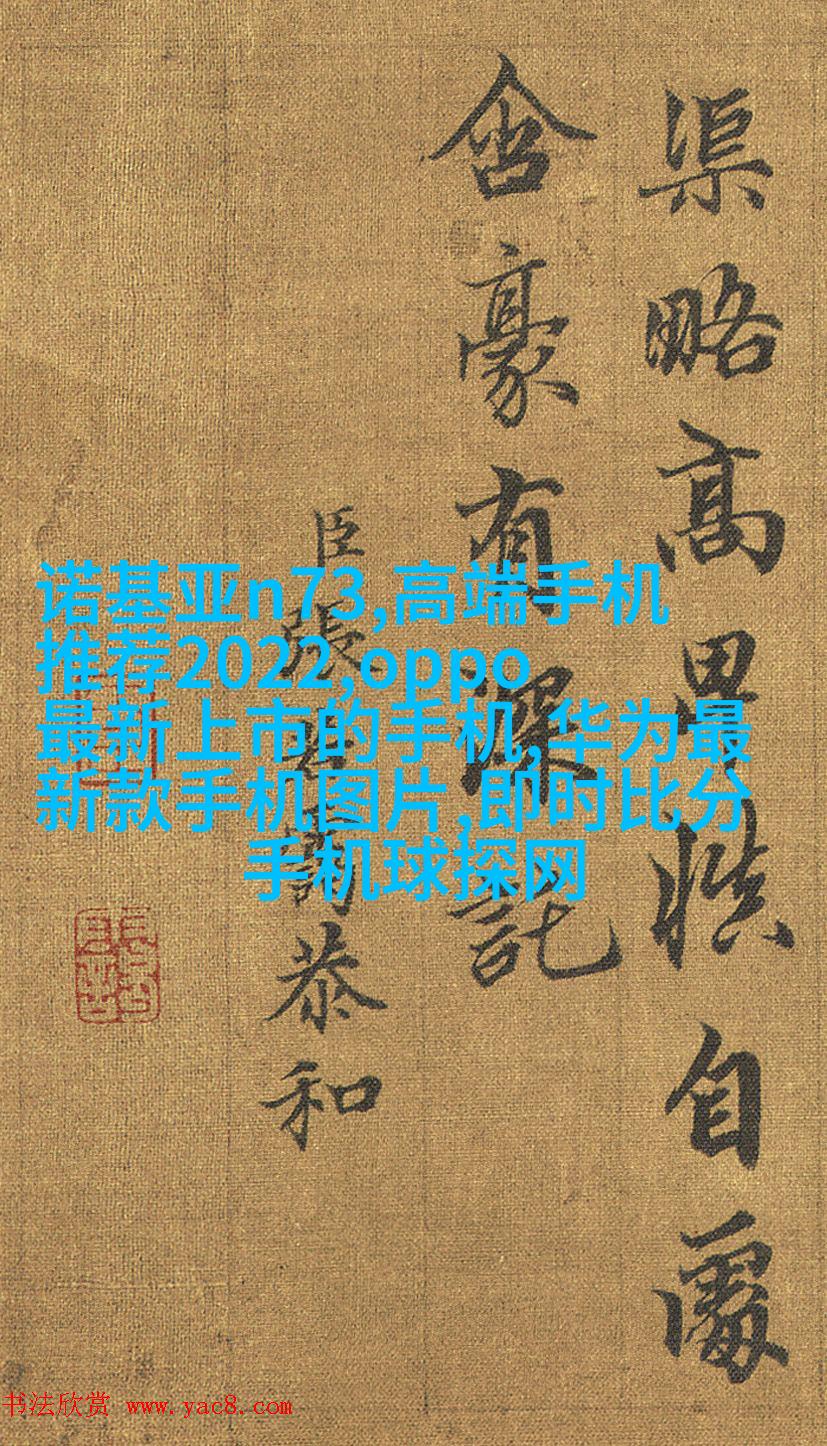 渠略高思慎自
含豪有深託
臣張若靄恭和
诺基亚n73,高端手机
推荐2022,oppo
最新上市的手机,华为最
新款手机图片,即时比分
手机球探网
书法欣赏 www.yac8.com